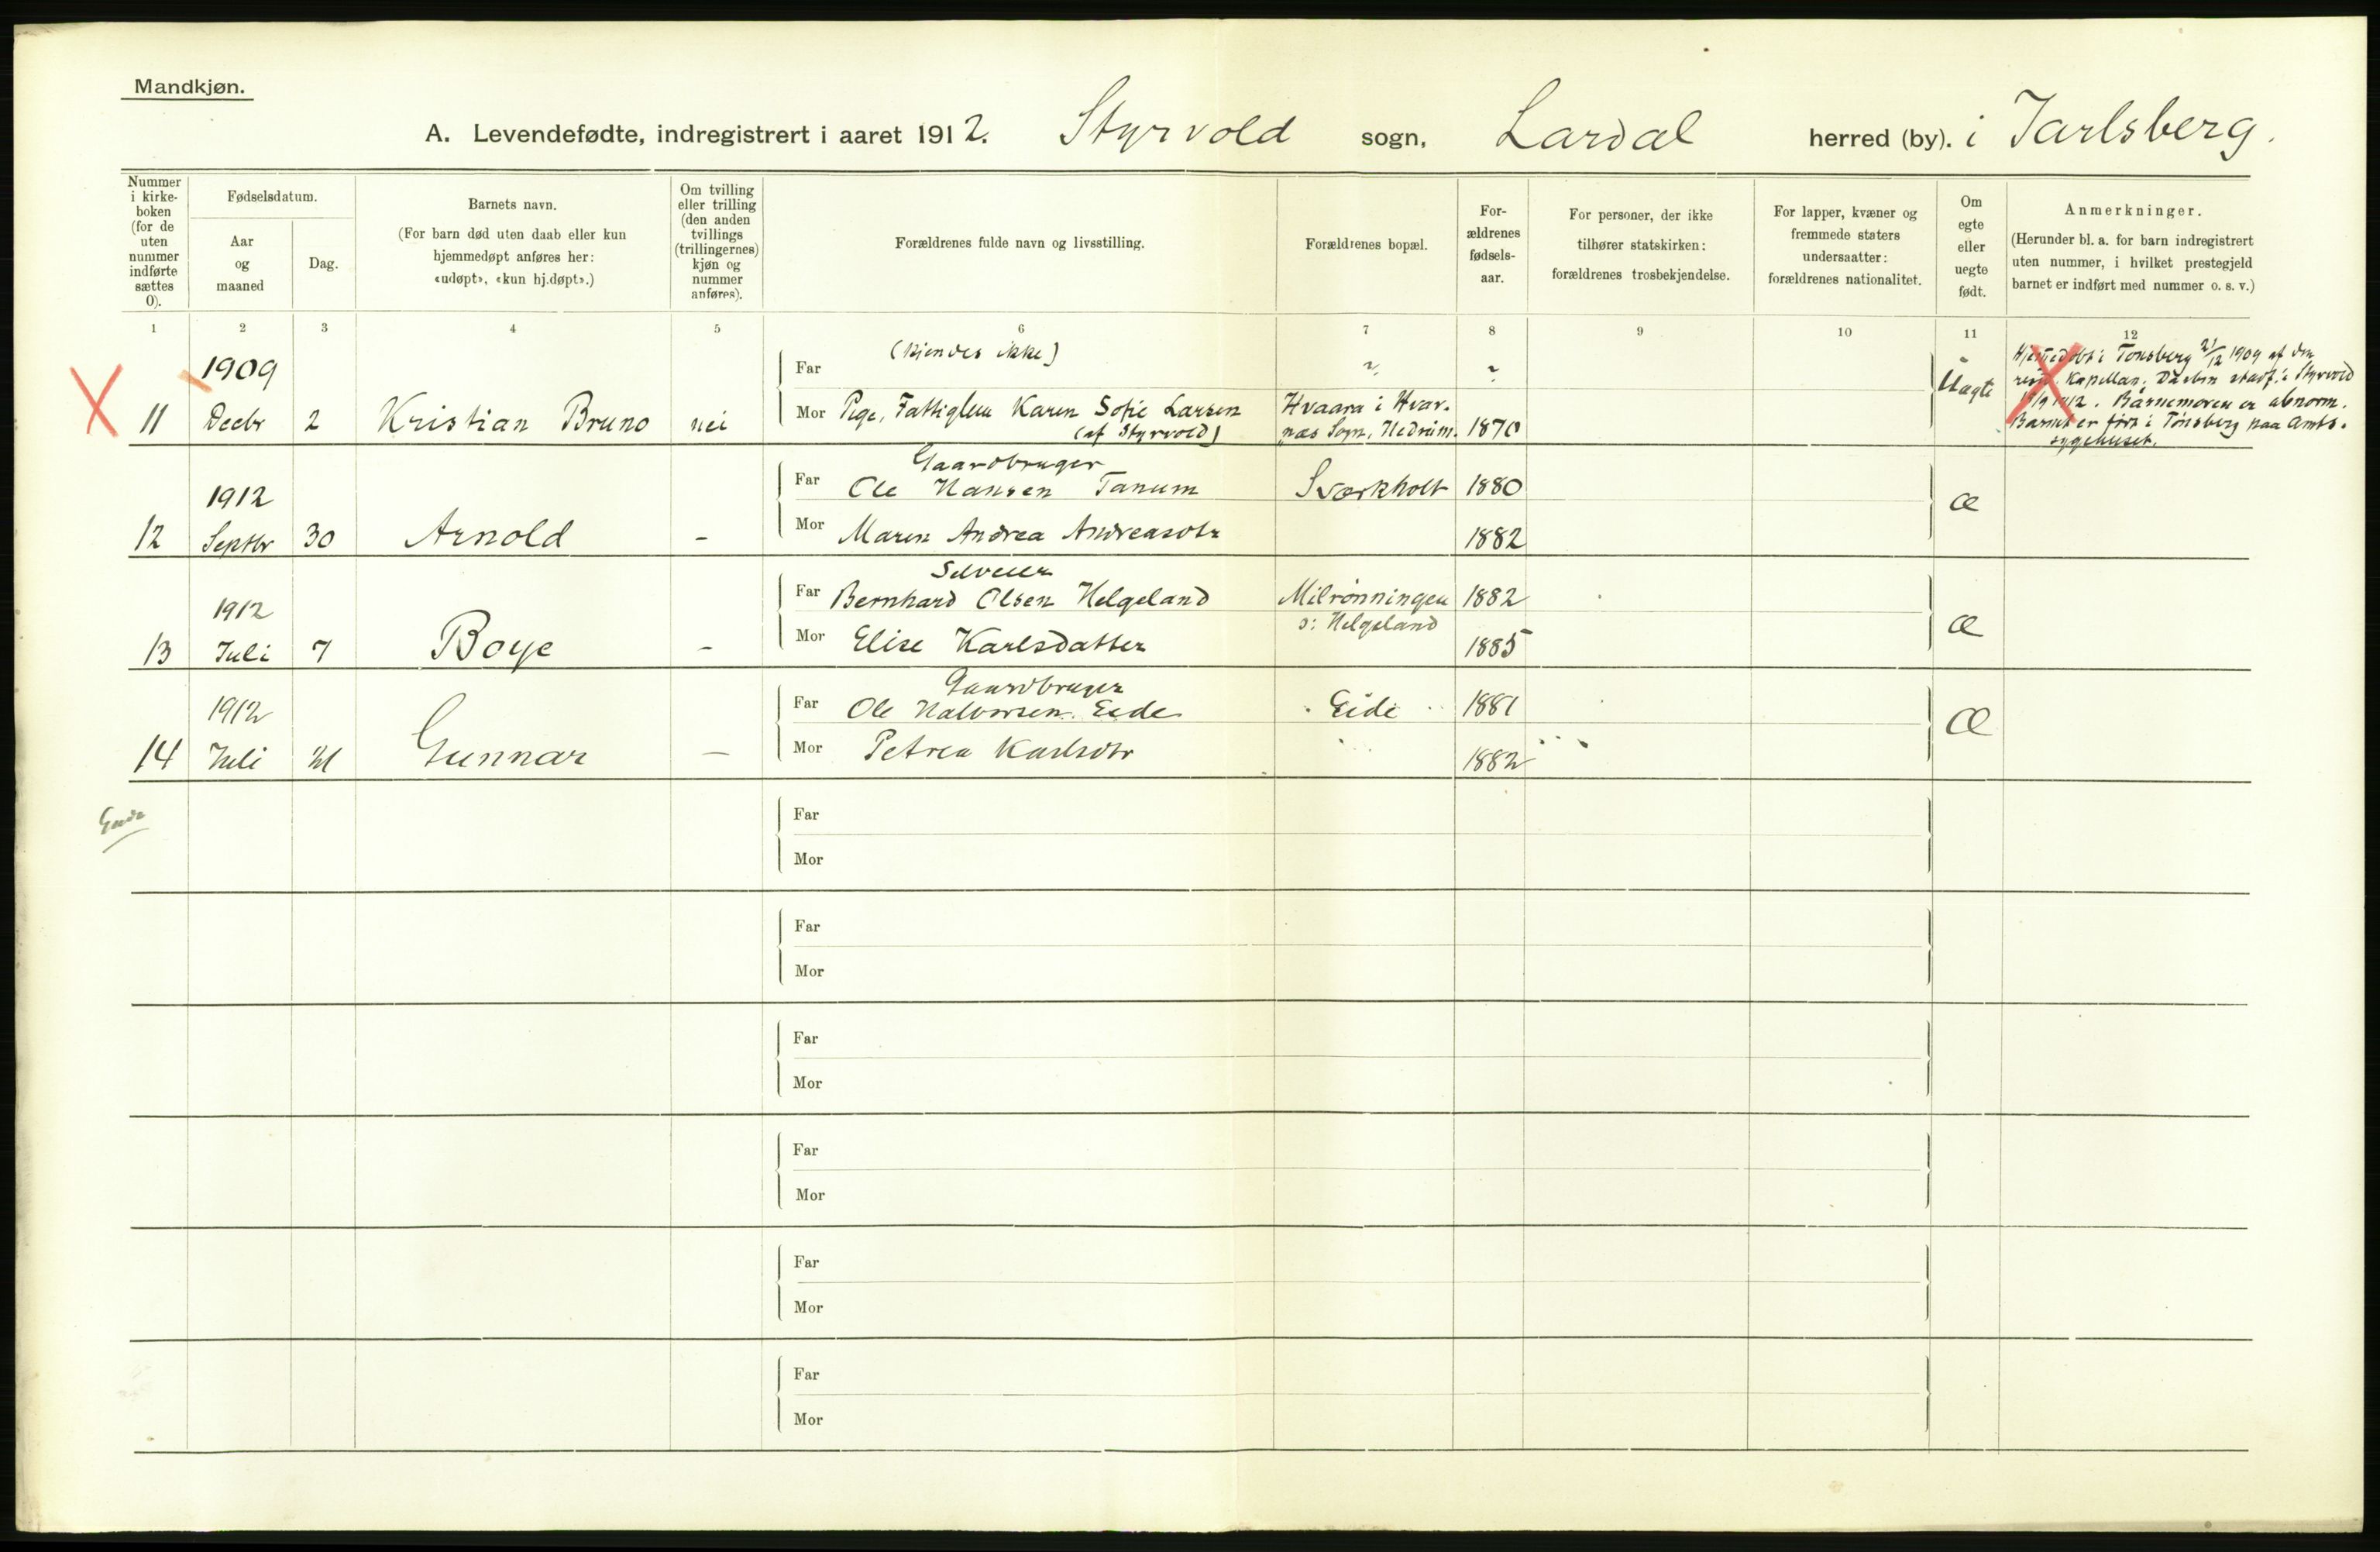 Mandkjøn.
A. Levendefødte, indregistrert i aaret 1912. Styrvold sogn, Lardal herred (by). i Jarlsberg.
Nummer
i kirke-
boken
(for de
uten
nummer
indførte
sættes
0).
Fødselsdatum.
Aar
og
maaned
Dag.
Barnets navn.
(For barn død uten daab eller kun
hjemmedøpt anføres her:
«udøpt», «kun hj.døpt».)
Om tvilling
eller trilling
(den anden
tvillings
(trillingernes)
kjøn og
nummer
anføres).
Forældrenes fulde navn og livsstilling.
Forældrenes bopæl.
For-
ældrenes
fødsels-
aar.
For personer, der ikke
tilhører statskirken:
forældrenes trosbekjendelse.
For lapper, kvæner og
fremmede staters
undersaatter:
forældrenes nationalitet.
Om
egte
eller
uegte
født.
Anmerkninger.
(Herunder bl. a. for barn indregistrert
uten nummer, i hvilket prestegjeld
barnet er indført med nummer o. s. v.)
1 2 3 4 5 6 7 8 9 10 11 12
1909
Far (kjendes ikke)
11 Decbr 2 Kristian Bruno nei
Mor Pige, Fattiglem Karen Sofie Larsen
(af Styrvold)
Hvaara i Hvar-
næs Sogn, Hedrum. 1870
Uægte
Hjemmedøbt i Tønsberg 21/12 1909 af den
resid. Kapellan. Daaben stadf. i Styrvold
1912. Barnemoren er abnorm.
Barnet er født i Tønsberg paa Amts-
sygehuset.
1912
Gaardbruger
Far Ole Hansen Tanum Sværkholt 1880
12 Septbr 30 Arnold -
Mor Maren Andrea Andreasdtr 1882
Æ
1912
Selveier
Far Bernhard Olsen Helgeland Milrønningen 1882
s: Helgeland
13 Juli 7 Boye -
Mor Elise Karlsdatter 1885
Æ
1912
Gaardbruger
Far Ole Halvorsen Eide Eide 1881
14 Juli 21 Gunnar -
Mor Petrea Karlsdtr 1882
Æ
Far
Mor
Far
Mor
Far
Mor
Far
Mor
Far
Mor
Far
Mor